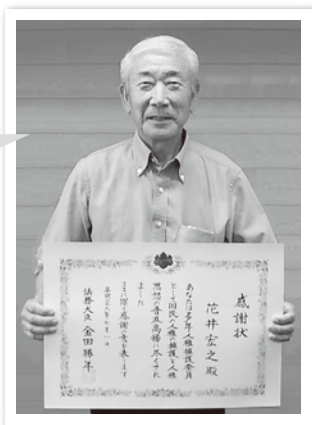 感謝状
花井宏之殿
あなたは多年人権擁護委員
として国民の人権の擁護と人権
思想の普及高揚に尽くされ
ました
ここに深く感謝の意を表します
平成二十九年七月一日
法務大臣 金田勝年